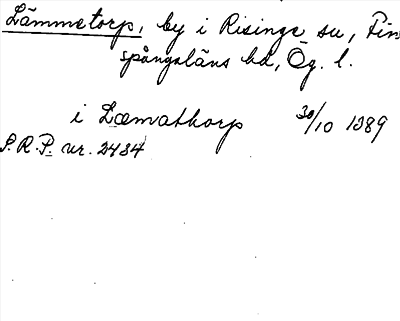 Lämmetorp, by i Risinge sn, Fin
spångsläns hd, Ög. l.
i Læmathorp 30/10 1389
S.R.P. nr. 2484